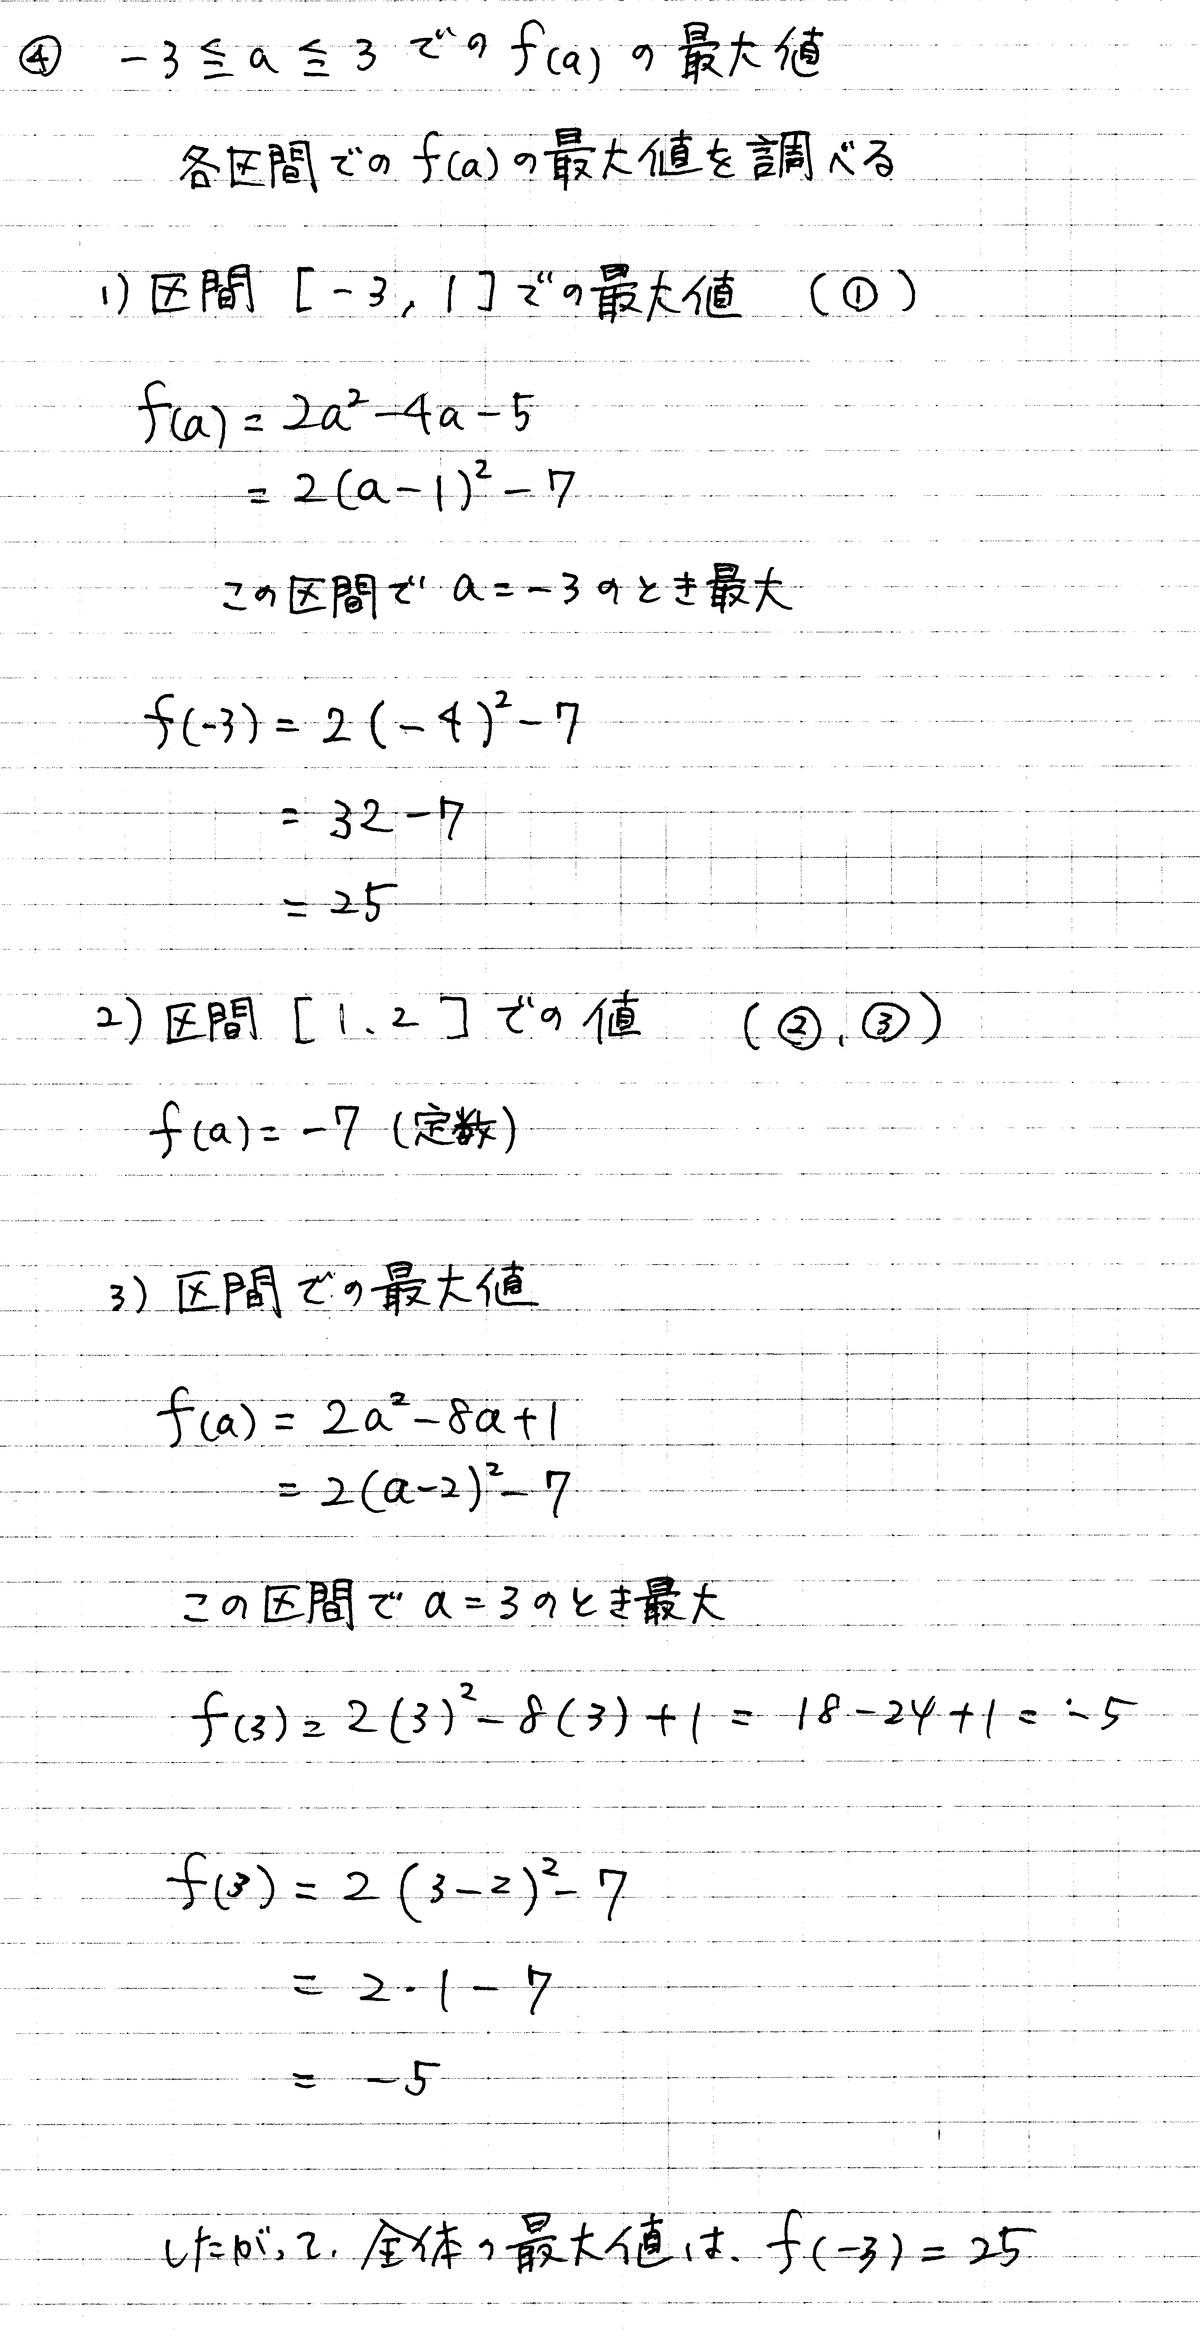 ④ -3 ≦ a ≦ 3 での f(a) の 最大値
各区間での f(a) の最大値を調べる
1) 区間 [-3, 1] での最大値 (①)
f(a) = 2a² - 4a - 5
= 2(a-1)² - 7
この区間で a = -3 のとき最大
f(-3) = 2(-4)² - 7
= 32 - 7
= 25
2) 区間 [1、2] での値 (②、③)
f(a) = -7 (定数)
3) 区間での最大値
f(a) = 2a² - 8a + 1
= 2(a-2)² - 7
この区間で a = 3 のとき最大
f(3) = 2(3)² - 8(3) + 1 = 18 - 24 + 1 = -5
f(3) = 2(3-2)² - 7
= 2・1 - 7
= -5
したがって、全体の最大値は、f(-3) = 25